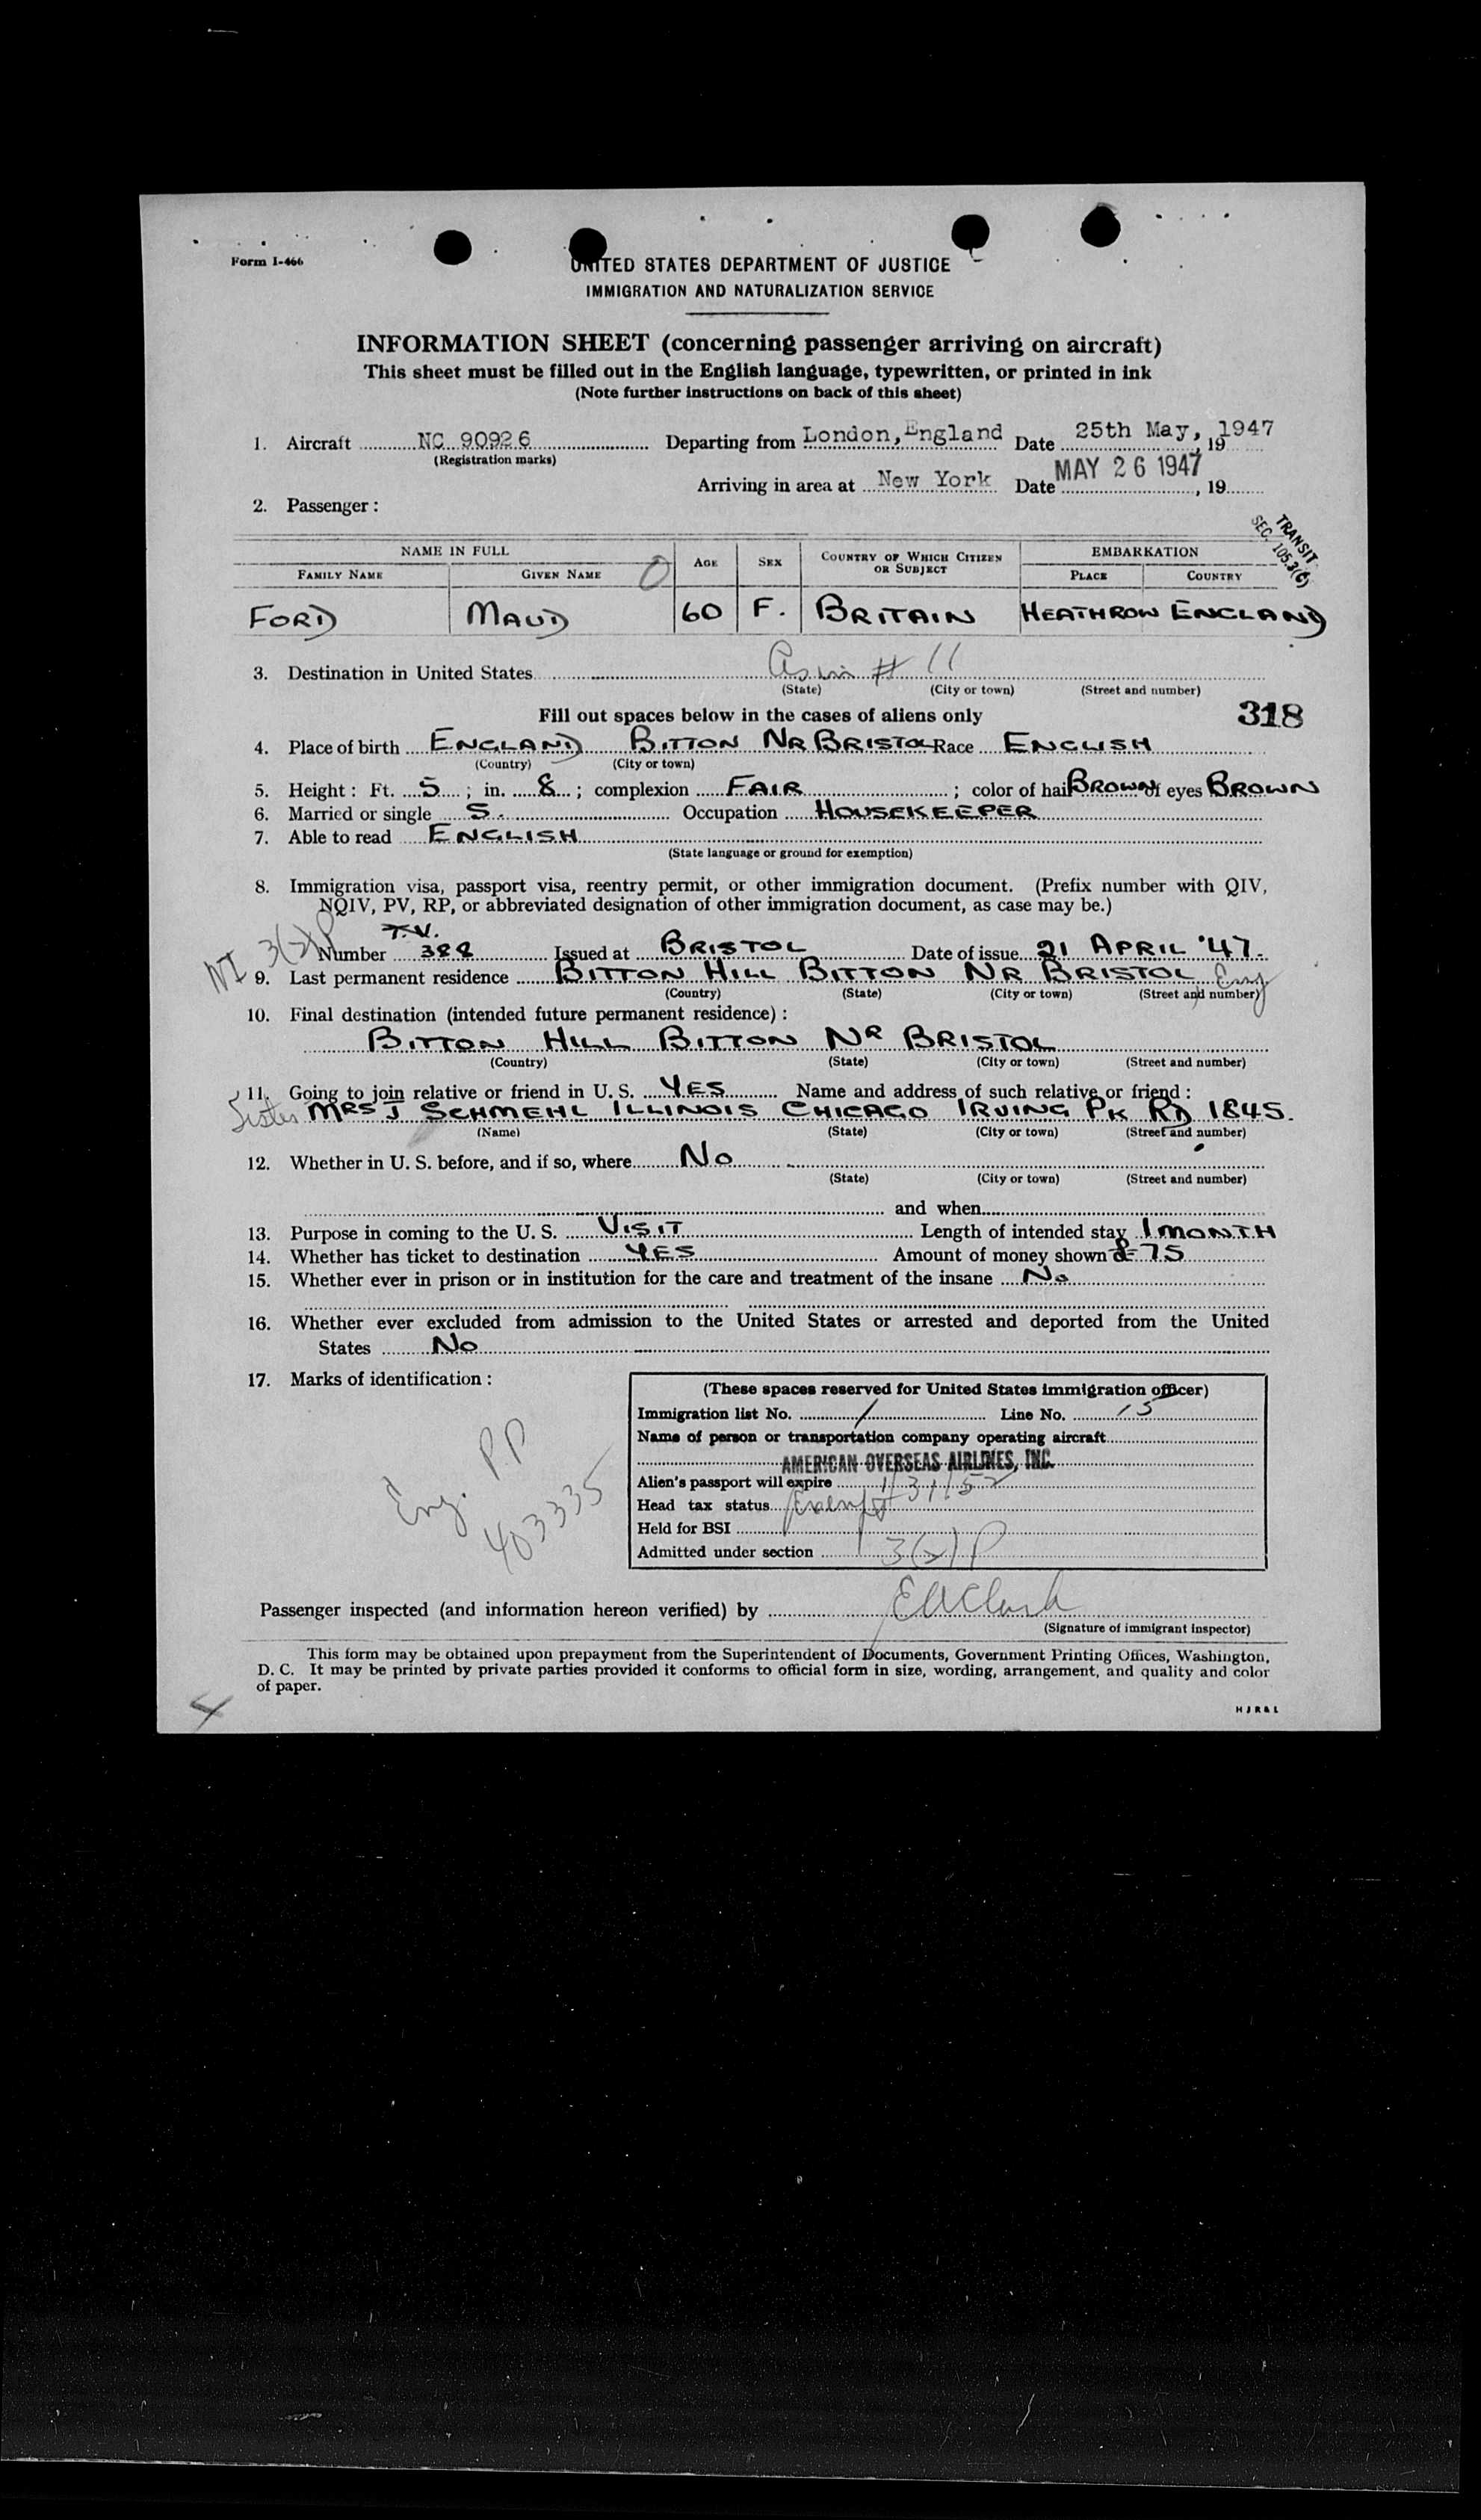 Form I-466
UNITED STATES DEPARTMENT OF JUSTICE
IMMIGRATION AND NATURALIZATION SERVICE
INFORMATION SHEET (concerning passenger arriving on aircraft)
This sheet must be filled out in the English language, typewritten, or printed in ink
(Note further instructions on back of this sheet)
1. Aircraft NC 90926 Departing from London, England Date 25th May, 1947
(Registration marks)
Arriving in area at New York Date MAY 26 1947, 19
2. Passenger :
TRANSIT
SEC. 105.3(c)
NAME IN FULL AGE SEX COUNTRY OF WHICH CITIZEN OR SUBJECT EMBARKATION
FAMILY NAME GIVEN NAME PLACE COUNTRY
FORD MAUD 60 F. BRITAIN HEATHROW ENGLAND
3. Destination in United States As in # 11
(State) (City or town) (Street and number)
Fill out spaces below in the cases of aliens only 318
4. Place of birth ENGLAND BITTON NR BRISTOL Race ENGLISH
(Country) (City or town)
5. Height : Ft. 5 ; in. 8 ; complexion FAIR ; color of hair BROWN of eyes BROWN
6. Married or single S. Occupation HOUSEKEEPER
7. Able to read ENGLISH
(State language or ground for exemption)
8. Immigration visa, passport visa, reentry permit, or other immigration document. (Prefix number with QIV,
NQIV, PV, RP, or abbreviated designation of other immigration document, as case may be.)
NI 3(2)P
T.V.
Number 388 Issued at BRISTOL Date of issue 21 APRIL '47.
9. Last permanent residence BITTON HILL BITTON NR BRISTOL Eng.
(Country) (State) (City or town) (Street and number)
10. Final destination (intended future permanent residence) :
BITTON HILL BITTON NR BRISTOL
(Country) (State) (City or town) (Street and number)
11. Going to join relative or friend in U. S. YES Name and address of such relative or friend :
Sister MRS J SCHMEHL ILLINOIS CHICAGO IRVING PK RD 1845.
(Name) (State) (City or town) (Street and number)
12. Whether in U. S. before, and if so, where No
(State) (City or town) (Street and number)
and when
13. Purpose in coming to the U. S. VISIT Length of intended stay 1 MONTH
14. Whether has ticket to destination YES Amount of money shown £ 75
15. Whether ever in prison or in institution for the care and treatment of the insane No
16. Whether ever excluded from admission to the United States or arrested and deported from the United
States No
17. Marks of identification :
Eng. P.P
403335
(These spaces reserved for United States immigration officer)
Immigration list No. 1 Line No. 15
Name of person or transportation company operating aircraft
AMERICAN OVERSEAS AIRLINES, INC.
Alien's passport will expire 1/31/52
Head tax status Exempt
Held for BSI
Admitted under section 3(2)P
Passenger inspected (and information hereon verified) by EAClark
(Signature of immigrant inspector)
This form may be obtained upon prepayment from the Superintendent of Documents, Government Printing Offices, Washington,
D. C. It may be printed by private parties provided it conforms to official form in size, wording, arrangement, and quality and color
of paper.
4
H J R & L